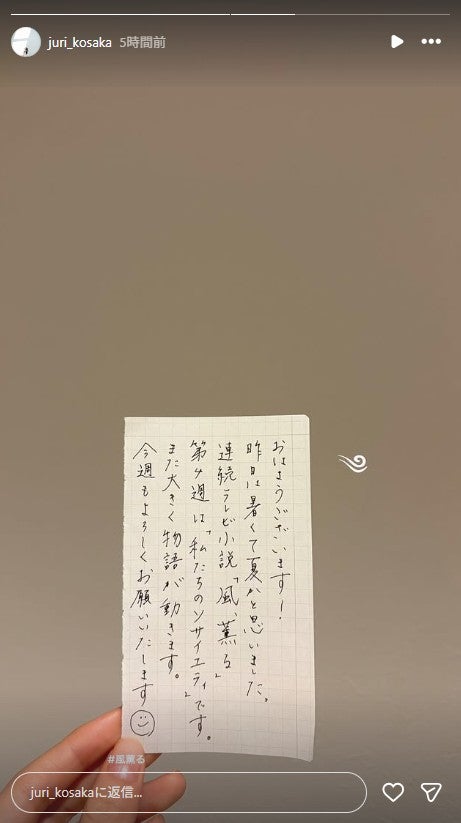 juri_kosaka 5時間前
おはようございます!
昨日は暑くて夏かと思いました。
連続テレビ小説「風、薫る」
第4週は「私たちのソサイエティ」です。
また大きく物語が動きます。
今週もよろしくお願いいたします
#風薫る
juri_kosakaに返信...